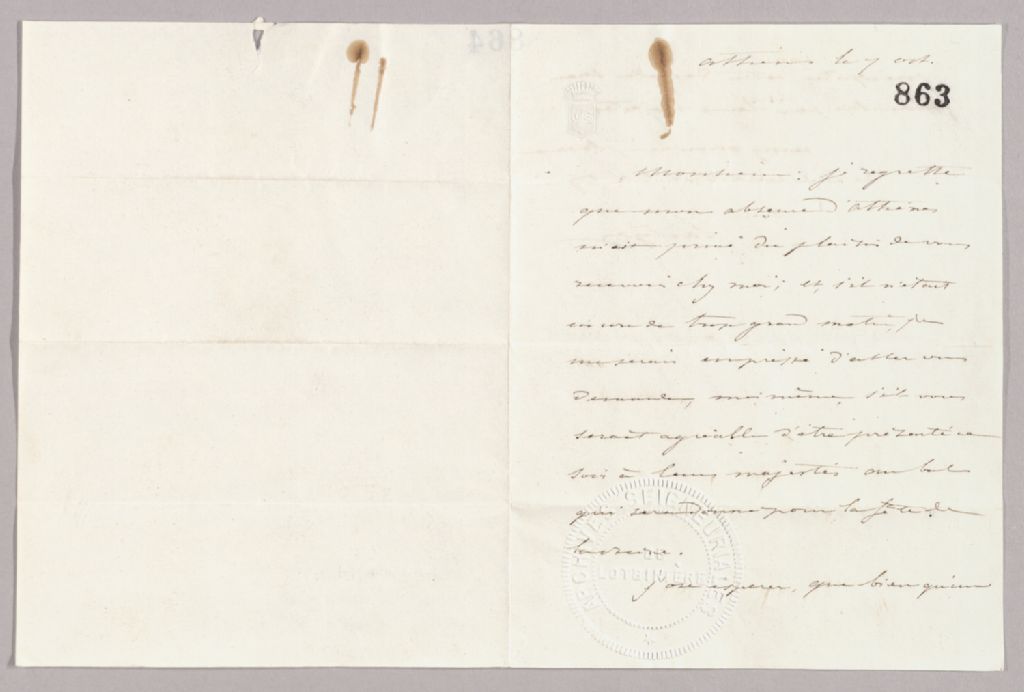 athènes le 7 oct.
863
Monsieur; je regrette
que mon absence d'athènes
m'ait privé du plaisir de vous
recevoir chez moi; et s'il n'etait
encore de trop grand matin, je
me serais empressé d'aller vous
demander, moi même, s'il vous
serait agréable d'être présenté ce
soir à leurs majestés au bal
qui sera donné pour la fête de
la reine.
J'ose esperer, que bien qu'un
ARCHIVES SEIGNEURIALES
DE
LOTBINIÈRE
864